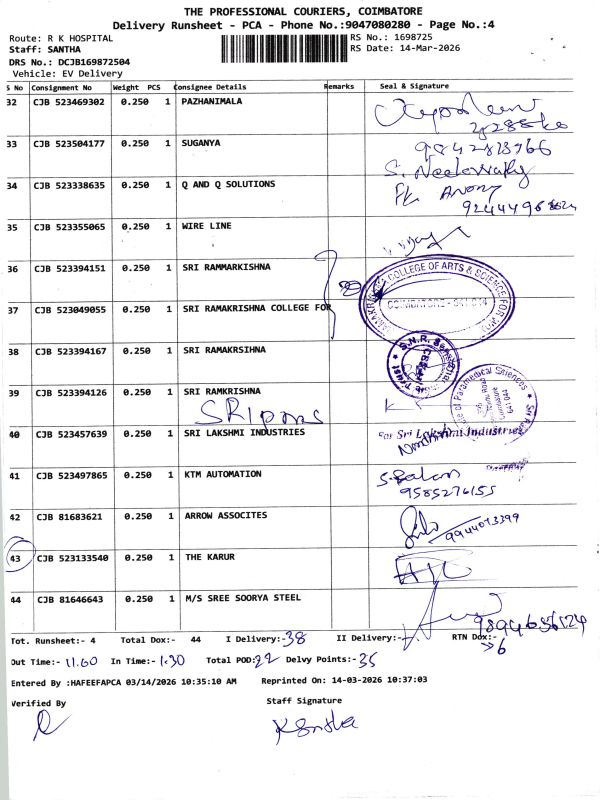 THE PROFESSIONAL COURIERS, COIMBATORE
Delivery Runsheet - PCA - Phone No.:9047080280 - Page No.:4
Route: R K HOSPITAL
RS No.: 1698725
Staff: SANTHA
RS Date: 14-Mar-2026
DRS No.: DCJB169872504
Vehicle: EV Delivery
S No Consignment No Weight PCS Consignee Details Remarks Seal & Signature
32 CJB 523469302 0.250 1 PAZHANIMALA
33 CJB 523504177 0.250 1 SUGANYA
34 CJB 523338635 0.250 1 Q AND Q SOLUTIONS
35 CJB 523355065 0.250 1 WIRE LINE
36 CJB 523394151 0.250 1 SRI RAMMARKISHNA
COLLEGE OF ARTS & SCIENCE FOR
37 CJB 523049055 0.250 1 SRI RAMAKRISHNA COLLEGE FOR
38 CJB 523394167 0.250 1 SRI RAMAKRSIHNA
39 CJB 523394126 0.250 1 SRI RAMKRISHNA
of Paramedical Sciences
40 CJB 523457639 0.250 1 SRI LAKSHMI INDUSTRIES
For Sri Lakshmi Industries
41 CJB 523497865 0.250 1 KTM AUTOMATION
9585276155
42 CJB 81683621 0.250 1 ARROW ASSOCITES
9944073399
43 CJB 523133540 0.250 1 THE KARUR
44 CJB 81646643 0.250 1 M/S SREE SOORYA STEEL
Tot. Runsheet:- 4 Total Dox:- 44 I Delivery:-38 II Delivery:- RTN Dox:- 6
Out Time:- 11.00 In Time:- 1.30 Total POD:22 Delvy Points:-35
Entered By :HAFEEFAPCA 03/14/2026 10:35:10 AM Reprinted On: 14-03-2026 10:37:03
Verified By Staff Signature